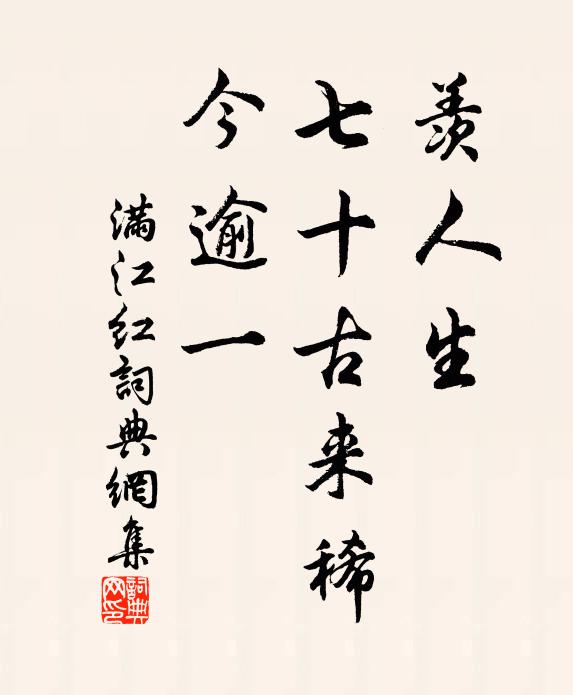 羨人生
七十古来稀
今逾一
滿江紅詞典網集
詞典
网印